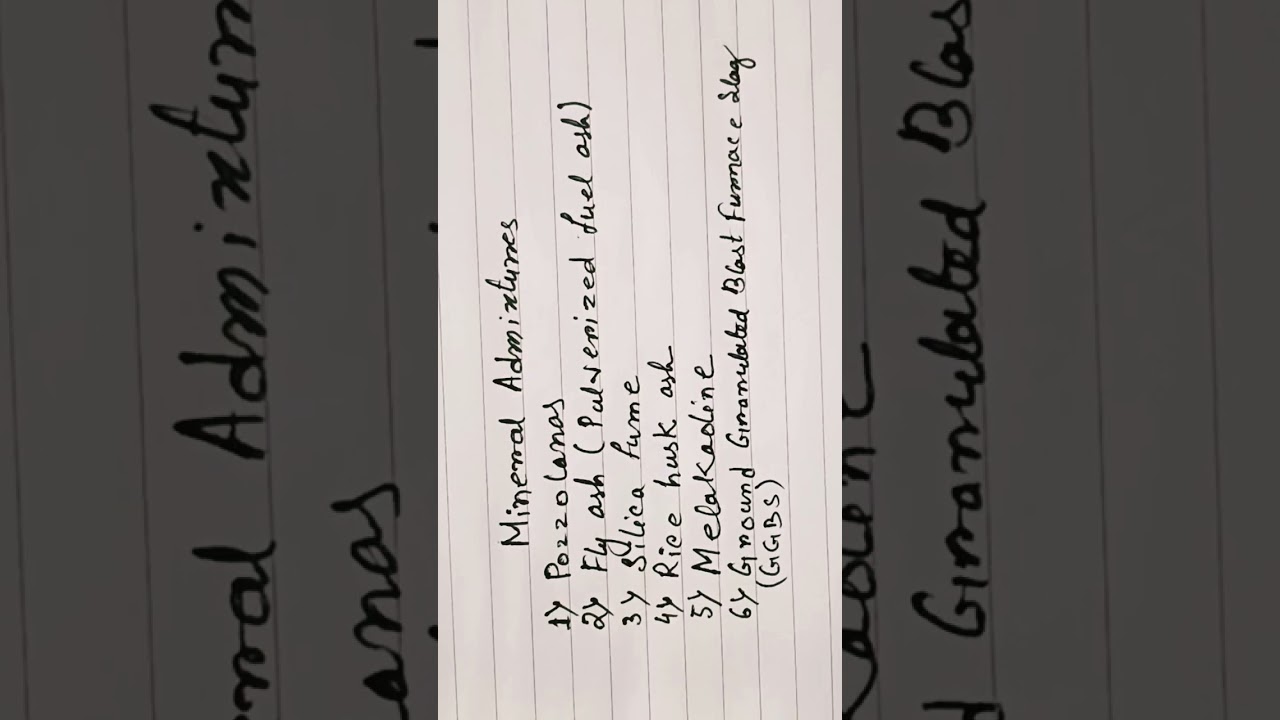 Mineral Admixtures
1) Pozzolanas
2) Fly ash (Pulverized fuel ash)
3) Silica fume
4) Rice husk ash
5) Melakaoline
6) Ground Granulated Blast Furnace Slag
(GGBS)